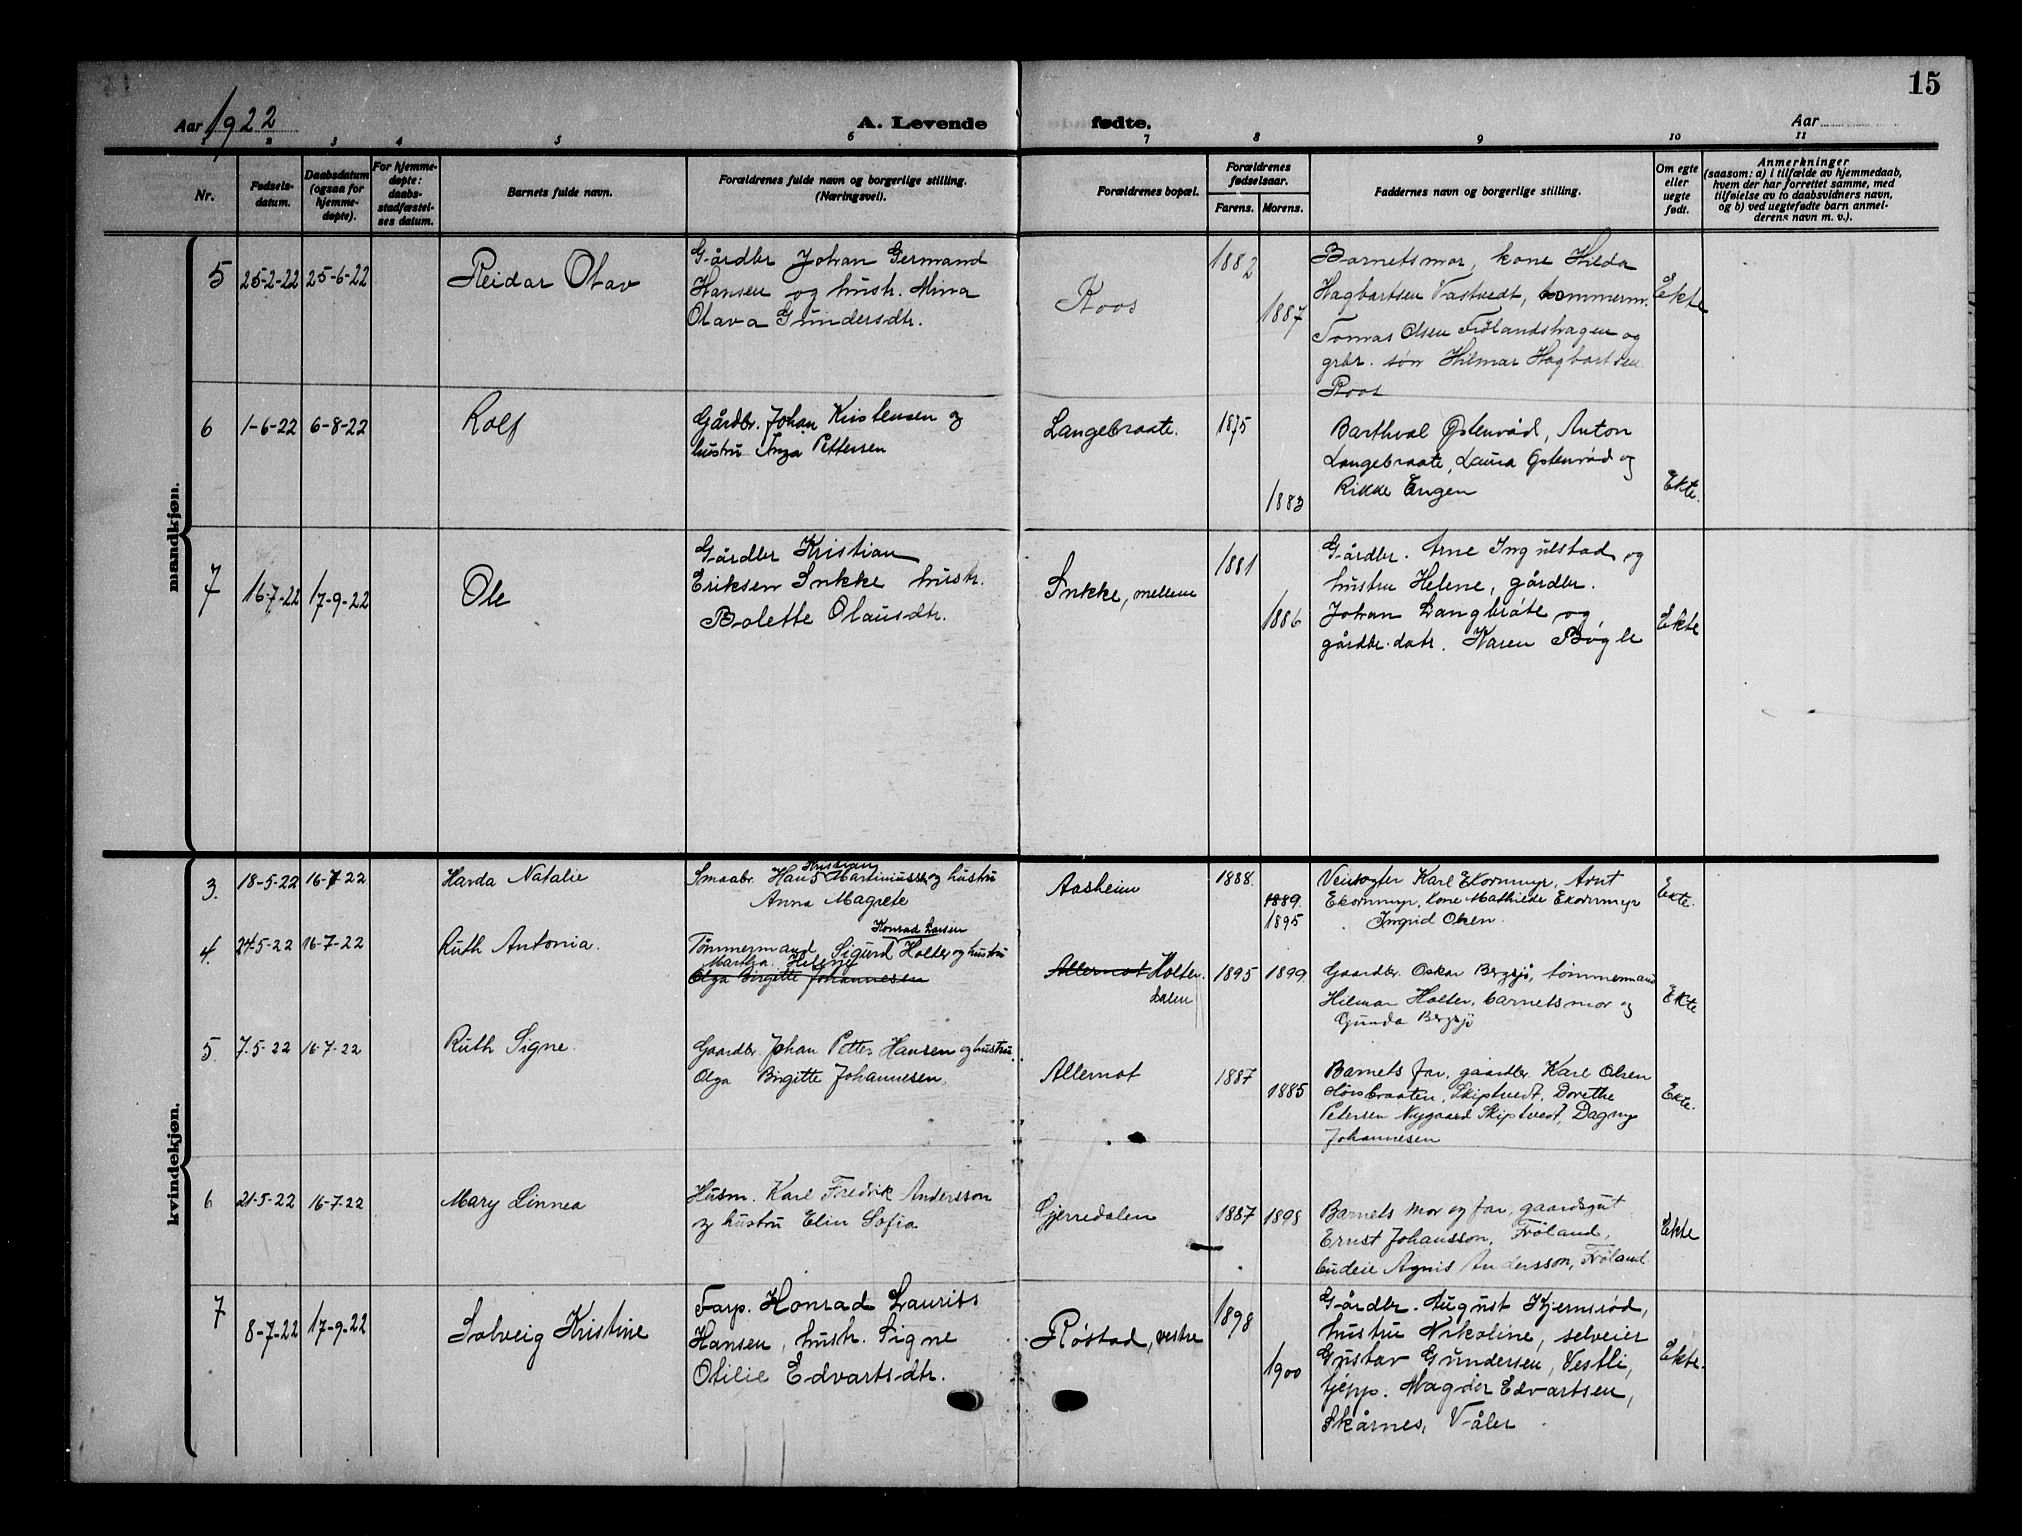 15
Aar 1922
A. Levende
fødte.
Aar
1 2 3 4 5 6 7 8 9 10 11
Nr.
Fødsels-
datum.
Daabsdatum
(ogsaa for
hjemme-
døpte).
For hjemme-
døpte:
daabs-
stadfæstel-
ses datum.
Barnets fulde navn.
Forældrenes fulde navn og borgerlige stilling.
(Næringsvei).
Forældrenes bopæl.
Forældrenes
fødselsaar.
Farens. Morens.
Faddernes navn og borgerlige stilling.
Om egte
eller
uegte
født.
Anmerkninger
(saasom: a) i tilfælde av hjemmedaab,
hvem der har forrettet samme, med
tilføielse av to daabsvidners navn,
og b) ved uegtefødte barn anmel-
derens navn m. v.).
mandkjøn.
5 25-2-22 25-6-22 Reidar Olav
Gårdbr Johan Germand
Hansen og hustr. Mina
Olava Gundersdtr.
Roos
1882
1887
Barnetsmor, kone Hilda
Hagbartsen Vastvedt, tommerm.
Tomas Olsen Frølandshagen og
grbr. søn Hilmar Hagbartsen
Roos
Ekte
6 1-6-22 6-8-22 Rolf
Gårdbr. Johan Kristensen og
hustru Inga Pettersen
Langebraate.
1875
1883
Barthval Østenrød, Anton
Langebraate, Laura Østenrød og
Rikke Engen
Ekte.
7 16-7-22 17-9-22 Ole
Gårdbr Kristian
Eriksen Inkke hustr.
Bolette Olausdtr.
Inkke, mellem
1881
1886
Gårdbr. Arne Ingulstad og
hustru Helene, gårdbr.
Johan Langbråte og
gårdbr. datr. Karen Bøgle
Ekte
kvindekjøn.
3. 18-5-22 16-7-22 Harda Natalie
Kristian
Smaabr. Hans Martiniussen og hustru
Anna Magrete
Aasheim
1888.
1889.
1895
Veivogter Karl Ekornmyr, Arnt
Ekornmyr, kone Mathilde Ekornmyr
Ingrid Olsen.
Ekte.
4. 24-5-22 16-7-22 Ruth Antonia.
Konrad Larsen
Tømmermand Sigurd Holter og hustru
Martha Helene
Olga Birgitte Johannesen
Allernot Holter
dalen
1895 1899.
Gaardbr. Oskar Bergsjø, tømmermand
Hilmar Holter, barnets mor og
Gunda Bergsjø
Ekte
5. 7-5-22 16-7-22 Ruth Signe.
Gaardbr. Johan Petter Hansen og hustru.
Olga Birgitte Johannesen.
Allernot
1887
1885
Barnets far, gaardbr. Karl Olsen
Horsbraaten, Skiptvedt, Dorethe
Petersen Nygaard Skiptvedt, Dagny
Johannesen
Ekte.
6 21-5-22 16-7-22 Mary Linnea
Husm. Karl Fredrik Andersson
og hustru Elin Sofia
Gjerredalen
1887 1898
Barnets mor og far, gaardsgut
Ernst Johansson, Frøland,
budeie Agnis Andersson, Frøland
Ekte
7 8-7-22 17-9-22 Solveig Kristine
Farp. Konrad Laurits
Hansen, hustr. Signe
Otilie Edvartsdtr.
Røstad, vestre
1898
1900
Gårdbr. August Kjernsrød,
hustru Nikoline, selveier
Gustav Gundersen, Vestli,
tjepp. Magder Edvartsen,
Skårnes, Våler
Ekte.